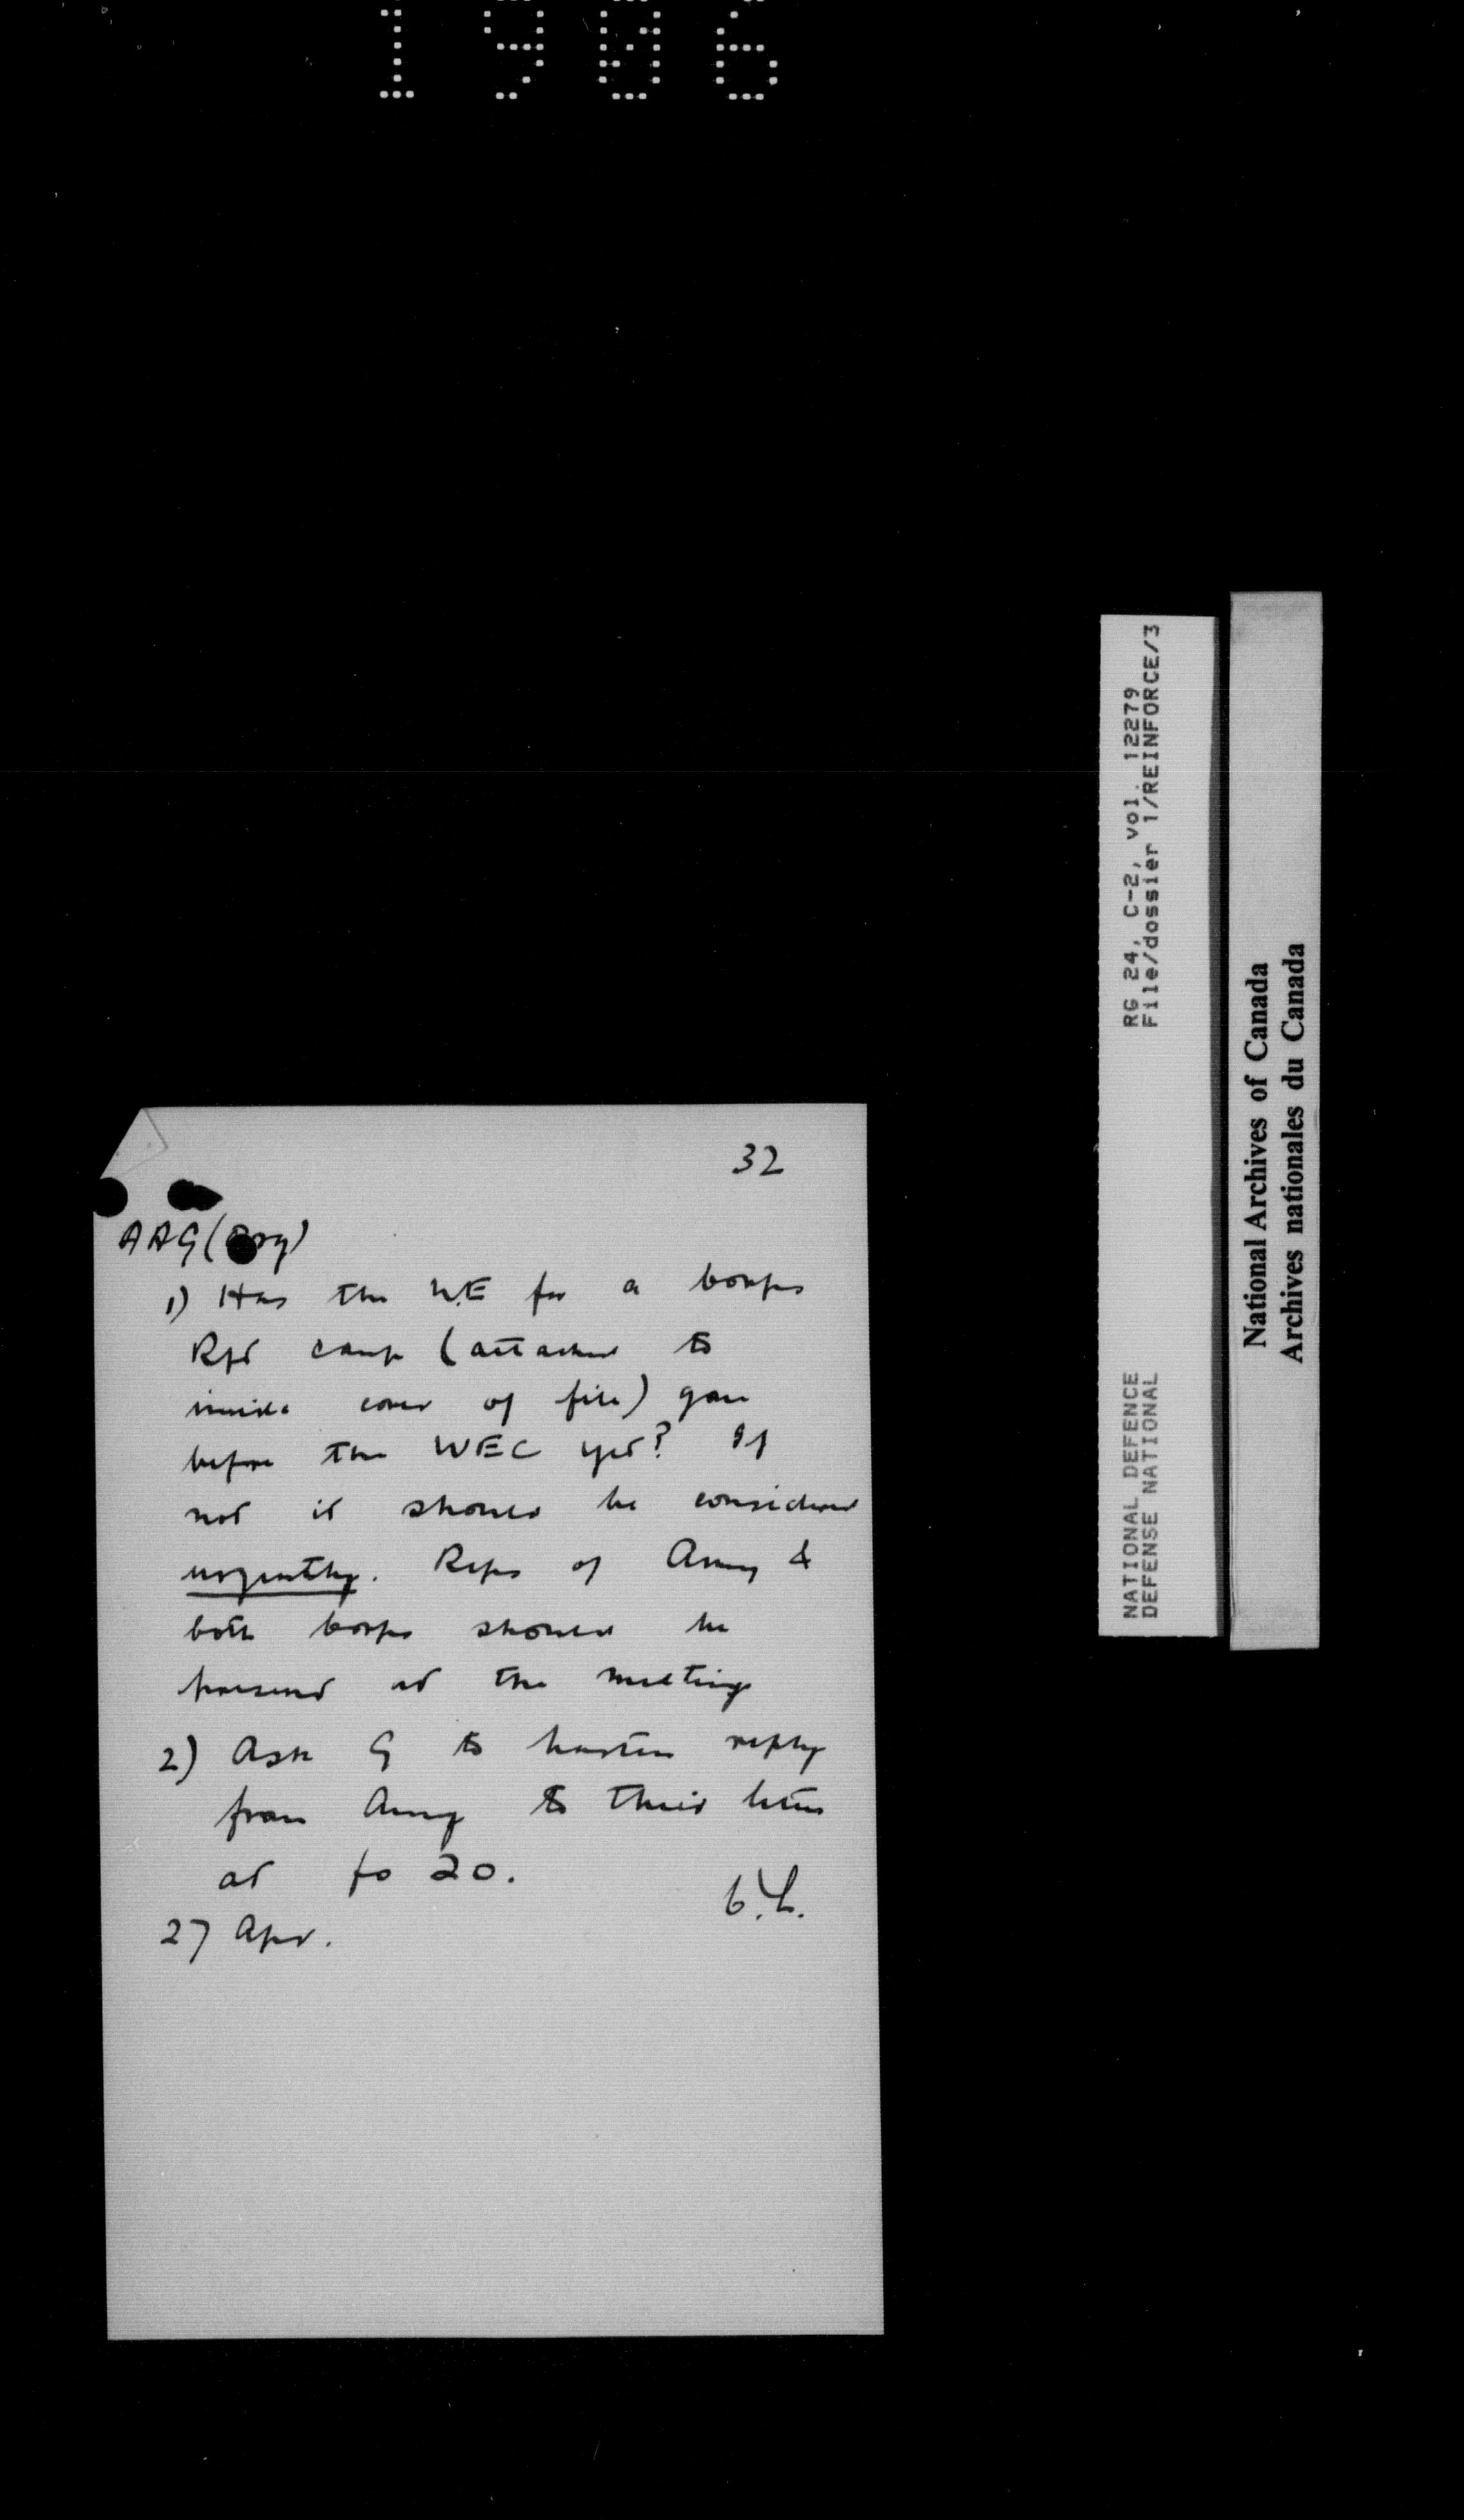 1906
32
AAG (Org)
1) Has the WE for a Corps
Rft camp (attached to
inside cover of file) gone
before the WEC yet? If
not it should be considered
urgently. Reps of Army &
both Corps should be
present at the meeting
2) Ask G to hasten reply
from Army to their letter
at fo 20.
27 Apr.
RG 24, C-2, vol. 12279
File/dossier 1/REINFORCE/3
NATIONAL DEFENCE
DEFENSE NATIONAL
National Archives of Canada
Archives nationales du Canada